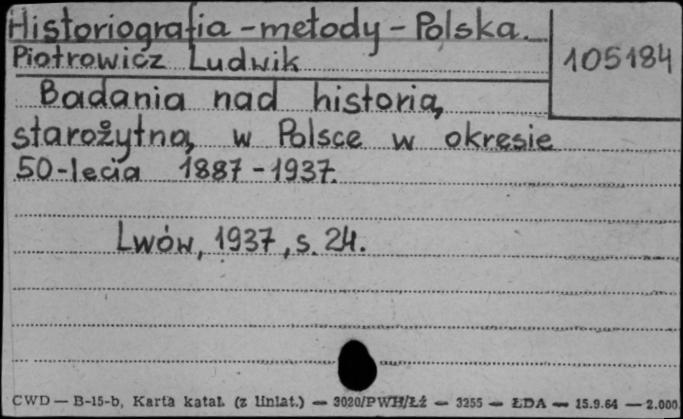 Historiografia - metody - Polska.
Piotrowicz Ludwik
105184
Badania nad historią
starożytną w Polsce w okresie
50-lecia 1887-1937.
Lwów, 1937, s. 24.
CWD — B-15-b, Karta katal. (z liniat.) — 3020/PWH/Łź — 3255 — ŁDA — 15.9.64 — 2.000